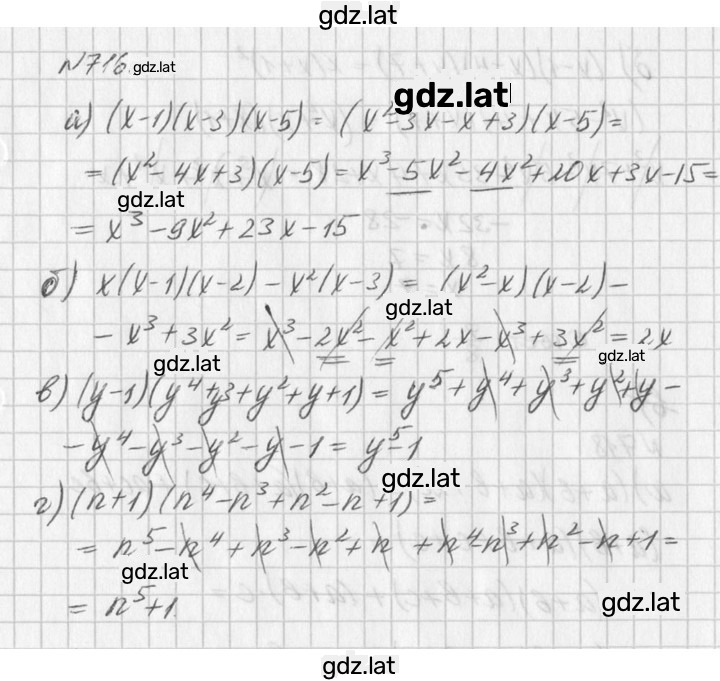 gdz.lat
№716. gdz.lat
gdz.lat
а) (x-1)(x-3)(x-5) = (x²-3x-x+3)(x-5) =
= (x²-4x+3)(x-5) = x³-5x²-4x²+20x+3x-15 =
gdz.lat
= x³-9x²+23x-15
б) x(x-1)(x-2) - x²(x-3) = (x²-x)(x-2) -
gdz.lat
- x³+3x² = x³-2x²-x²+2x-x³+3x² = 2x
gdz.lat gdz.lat
в) (y-1)(y⁴+y³+y²+y+1) = y⁵+y⁴+y³+y²+y-
-y⁴-y³-y²-y-1 = y⁵-1
gdz.lat
г) (n+1)(n⁴-n³+n²-n+1) =
= n⁵-n⁴+n³-n²+n+n⁴-n³+n²-n+1 =
gdz.lat
= n⁵+1
gdz.lat
gdz.lat